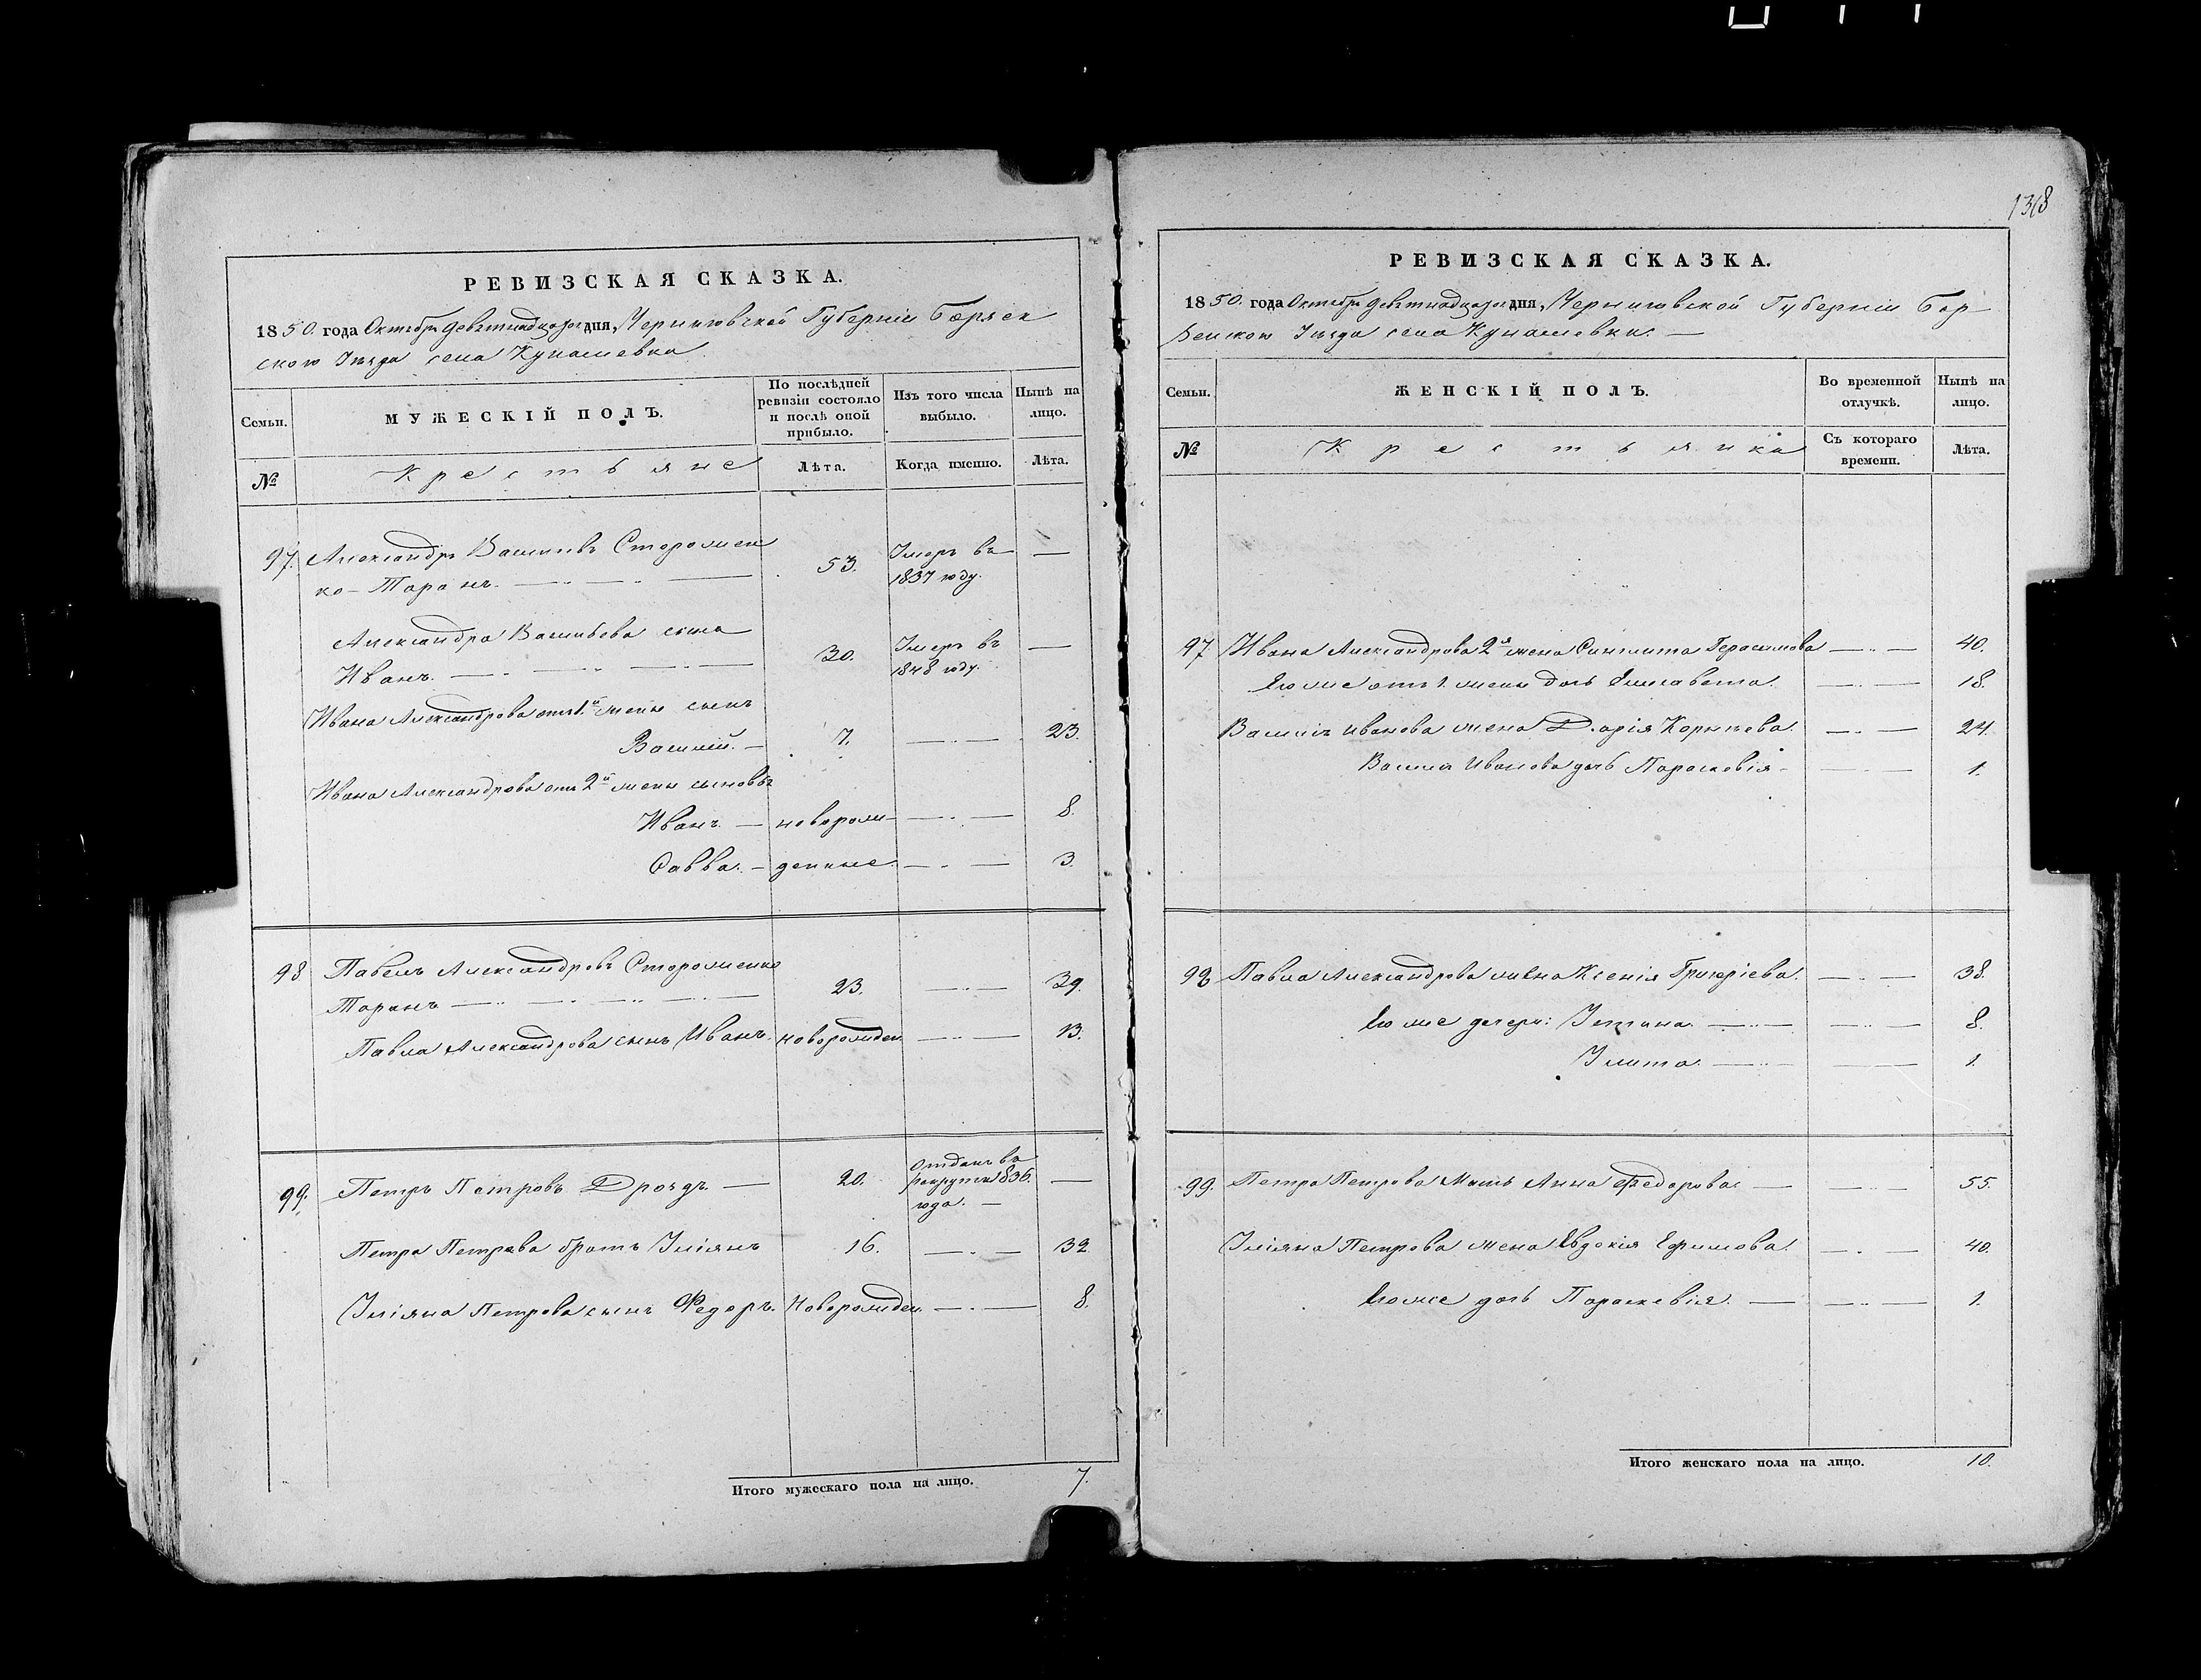 1318
РЕВИЗСКАЯ СКАЗКА.
1850. года Октября девятнадцатого дня, Черниговской Губерніи Борзен
ского Уѣзда села Кунашевки
Семьи.
МУЖЕСКІЙ ПОЛЪ.
По послѣдней ревизіи состояло и послѣ оной прибыло.
Изъ того числа выбыло.
Нынѣ на лицо.
№
Крестьяне
Лѣта.
Когда именно.
Лѣта.
97. Александръ Васильевъ Сторожен
ко-Таранъ. 53. Умеръ въ 1837 году. —
Александра Васильева сынъ
Иванъ. 30. Умеръ въ 1848 году. —
Ивана Александрова отъ 1й жены сынъ
Василій. — 7. — 23.
Ивана Александрова отъ 2й жены сыновья
Иванъ. — новорож- — 8.
Савва. — денные. — 3.
98 Павелъ Александровъ Стороженко
Таранъ — 23. — 39.
Павла Александрова сынъ Иванъ. новорожден. — 13.
99. Петръ Петровъ Дроздъ. — 20. Отданъ въ рекруты 1836. года. — —
Петра Петрова братъ Уліянъ 16. — 32
Уліяна Петрова сынъ Федоръ. Новорожден. — 8.
Итого мужескаго пола на лицо. 7.
РЕВИЗСКАЯ СКАЗКА.
1850. года Октября девятнадцатого дня, Черниговской Губерніи Бор
зенского Уѣзда села Кунашевки. —
Семьи.
ЖЕНСКІЙ ПОЛЪ.
Во временной отлучкѣ.
Нынѣ на лицо.
№
Крестьянка
Съ котораго времени.
Лѣта.
97 Ивана Александрова 2я жена Синклита Герасимова — 40.
Его же отъ 1. жены дочь Елисавета. — 18.
Василія Иванова жена Дарія Корнѣева. — 24.
Василія Иванова дочь Параскевія — 1.
98 Павла Александрова жена Ксенія Григоріева. — 38.
Его же дочери: Устина. — 8.
Улита. — 1.
99. Петра Петрова Мать Анна Федорова — 55.
Уліяна Петрова жена Евдокія Ефимова. — 40.
Его же дочь Параскевія. — 1.
Итого женскаго пола на лицо. 10.